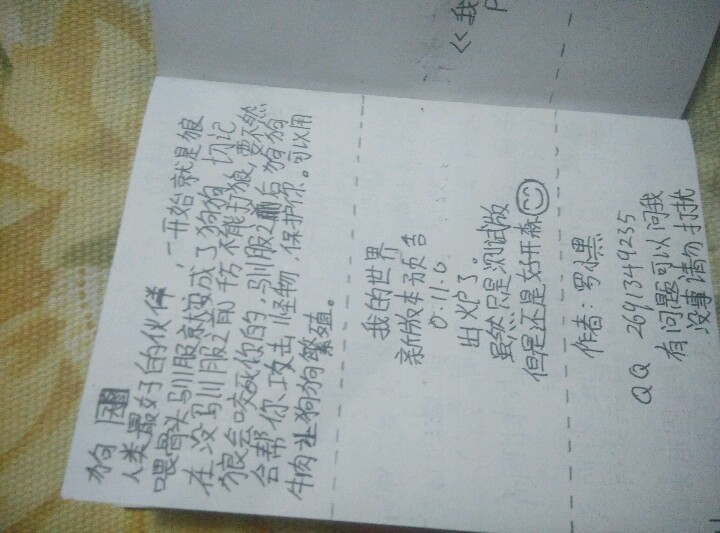 狗
人类最好的伙伴，一开始就是狼
喂骨头驯服就变成了狗狗，切记
在没驯服之前千万不能打狼，要不然
狼会咬死你的，驯服之后狗狗
会帮你攻击怪物，保护你。可以用
牛肉让狗狗繁殖。
我的世界
新版本预告
0.11.0
出炉了。
虽然只是测试版
但是还是好开森
作者：罗小黑
QQ 2691349235
有问题可以问我
没事请勿打扰
《我